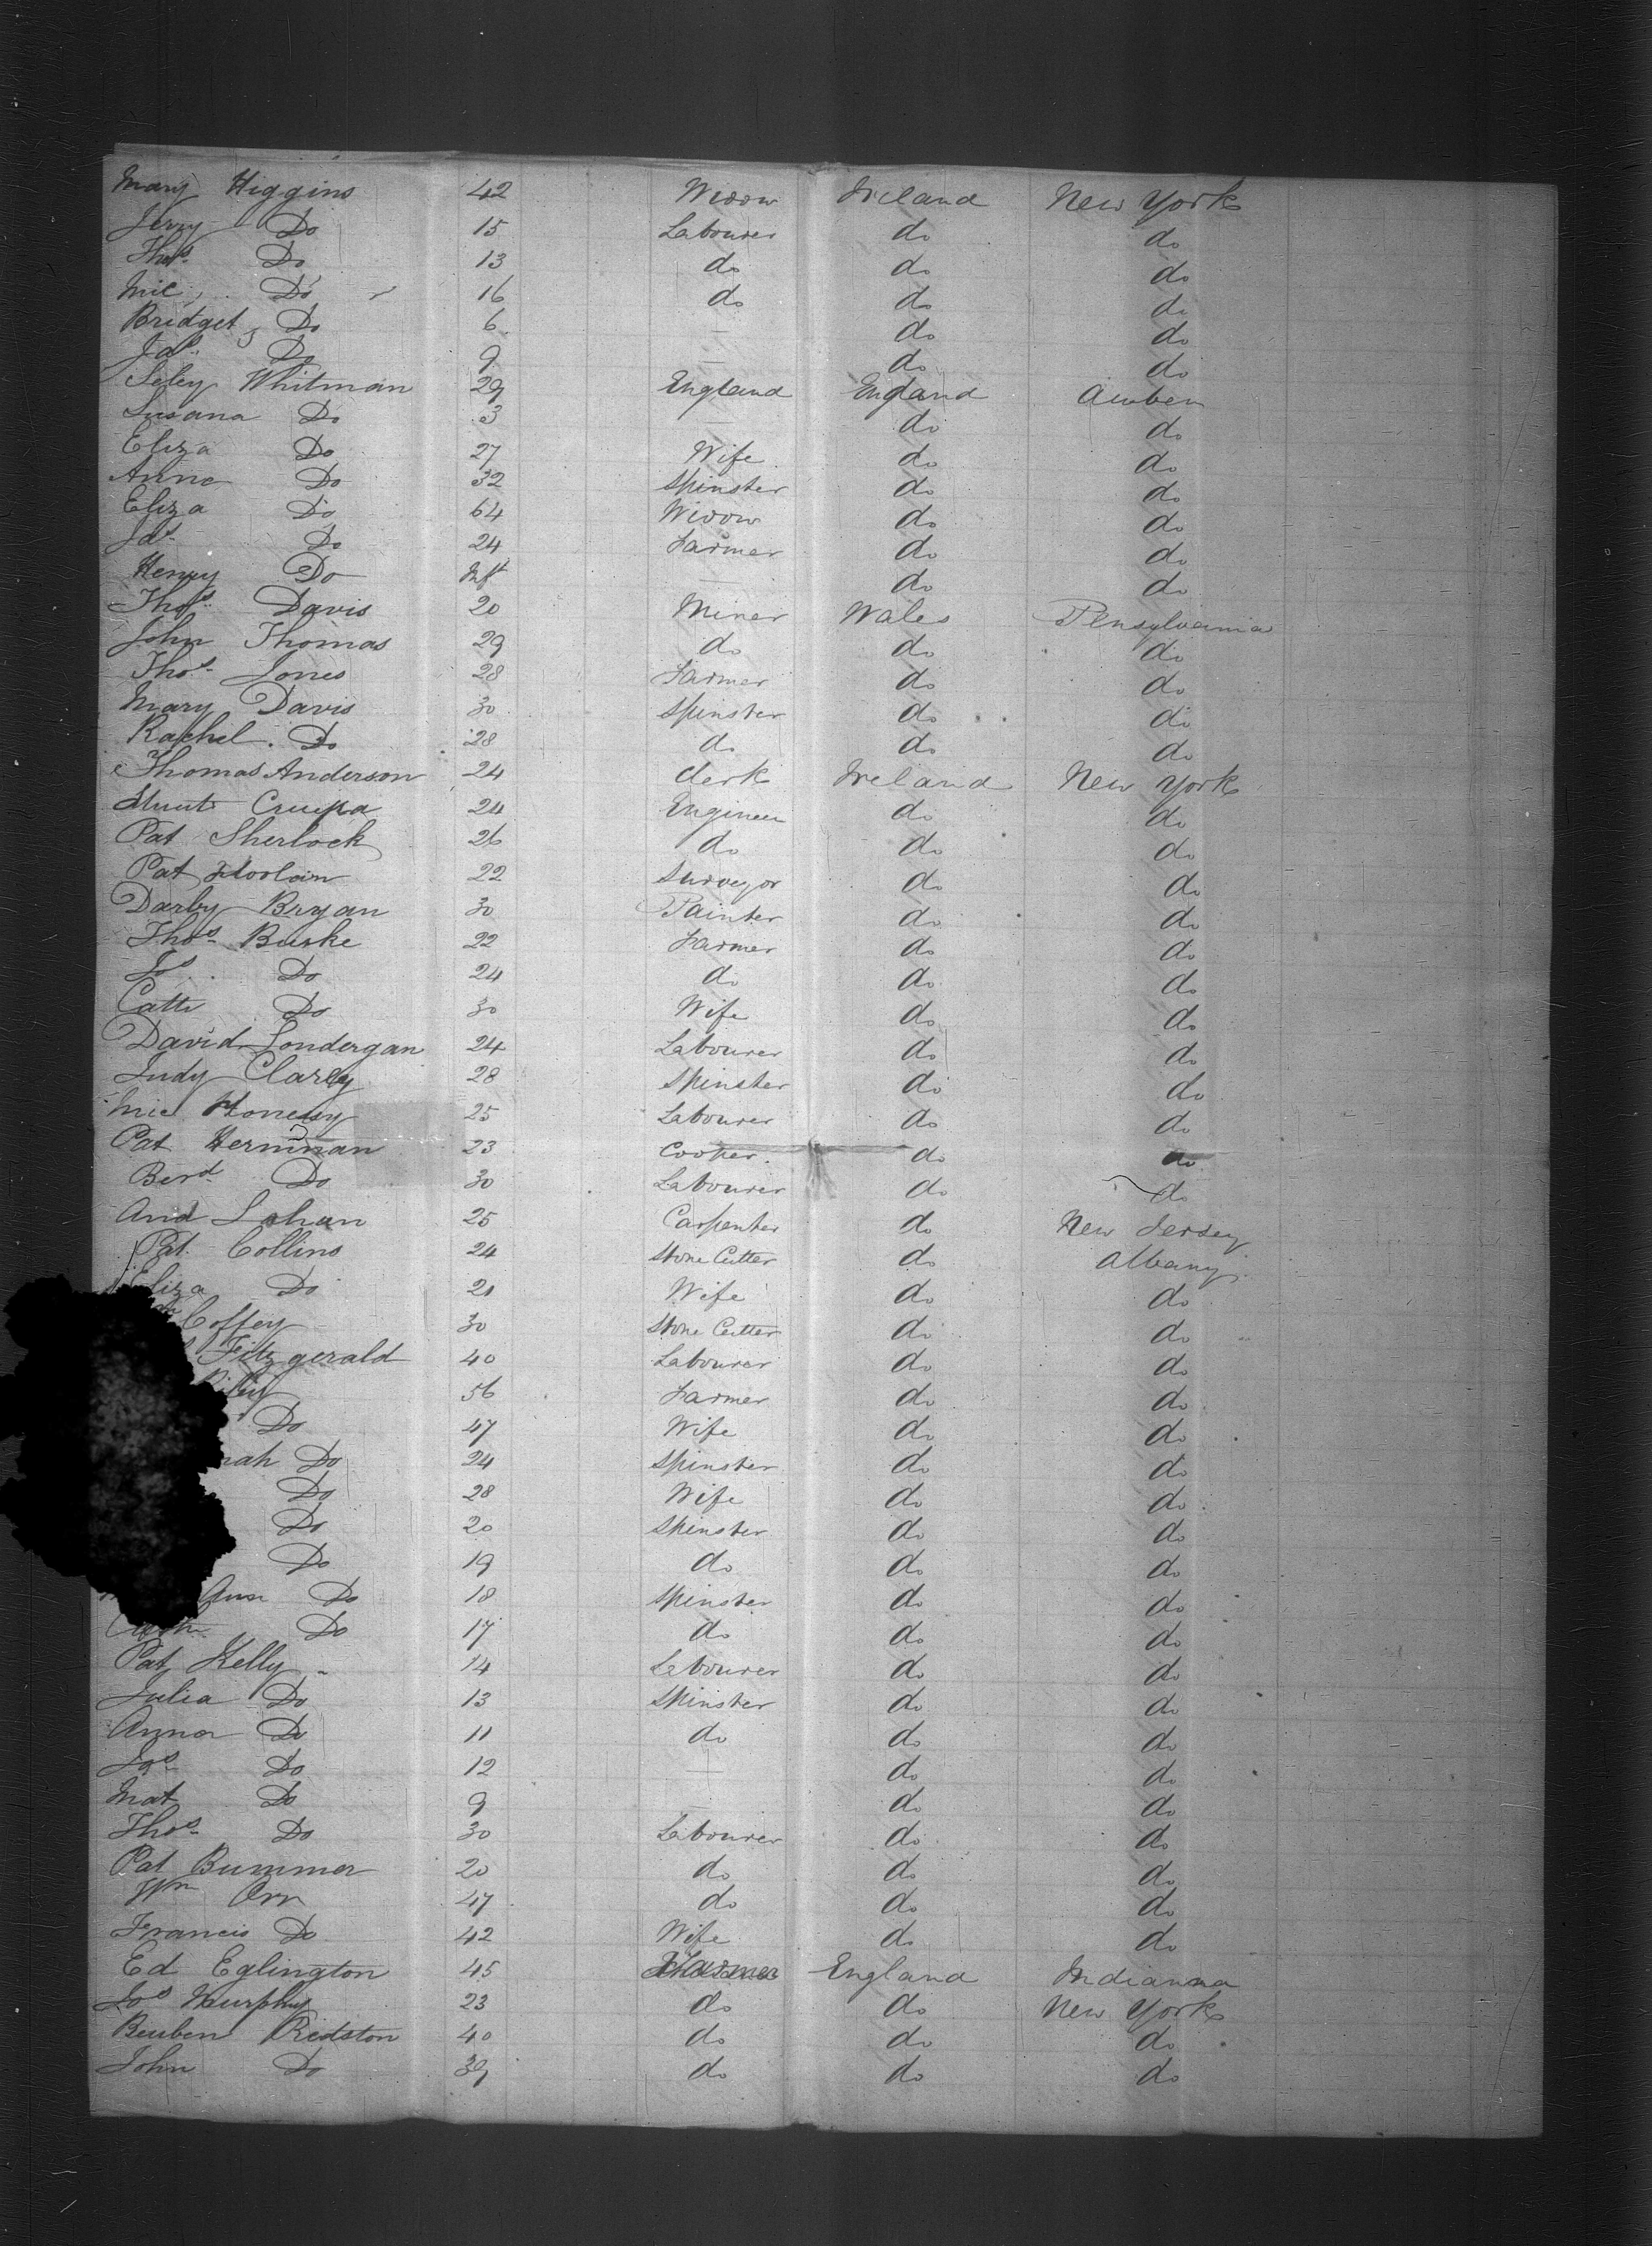 Mary Higgins 42 Widow Ireland New York
Jerry Do 15 Labourer do do
Thos. Do 13 do do do
Mic Do 16 do do do
Bridget Do 6 — do do
Jas. Do 9 — do do
Seley Whitman 29 England England
Susana Do 3 — do do
Eliza Do 27 Wife do do
Anne Do 32 Spinster do do
Eliza Do 64 Widow do do
Jas. Do 24 Farmer do do
Henry Do Inft — do do
Thos. Davis 20 Miner Wales Pensylvania
John Thomas 29 do do do
Thos. Jones 28 Farmer do do
Mary Davis 30 Spinster do do
Rachel Do 28 do do do
Thomas Anderson 24 Clerk Ireland New York
24 Engineer do do
Pat Sherlock 26 do do do
Pat 22 Surveyor do do
Darby Bryan 30 Painter do do
Thos. Burke 22 Farmer do do
Do 24 do do do
Cath Do 30 Wife do do
David Londergan 24 Labourer do do
Judy Clarey 28 Spinster do do
Mic 25 Labourer do do
Pat 23 Cooper do do
Berd. Do 30 Labourer do do
And Lohan 25 Carpenter do New Jersey
Pat. Collins 24 Stone Cutter do Albany
Eliza Do 21 Wife do do
Coffey 30 Stone Cutter do do
Fitzgerald 40 Labourer do do
56 Farmer do do
Do 47 Wife do do
nah Do 24 Spinster do do
Do 28 Wife do do
Do 20 Spinster do do
Do 19 do do do
Ann Do 18 Spinster do do
Do 17 do do do
Pat Kelly 14 Labourer do do
Julia Do 13 Spinster do do
Anna Do 11 do do do
Jas. Do 12 — do do
Mat Do 9 — do do
Thos. Do 30 Labourer do do
Pat Bummer 20 do do do
Wm Orr 47 do do do
Francis Do 42 Wife do do
Ed Eglington 45 Farmer England Indianna
Jos Murphy 23 do do New York
Beuben Ridston 40 do do do
John Do 39 do do do